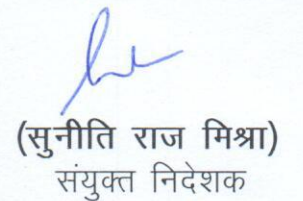 (सुनीति राज मिश्रा)
संयुक्त निदेशक